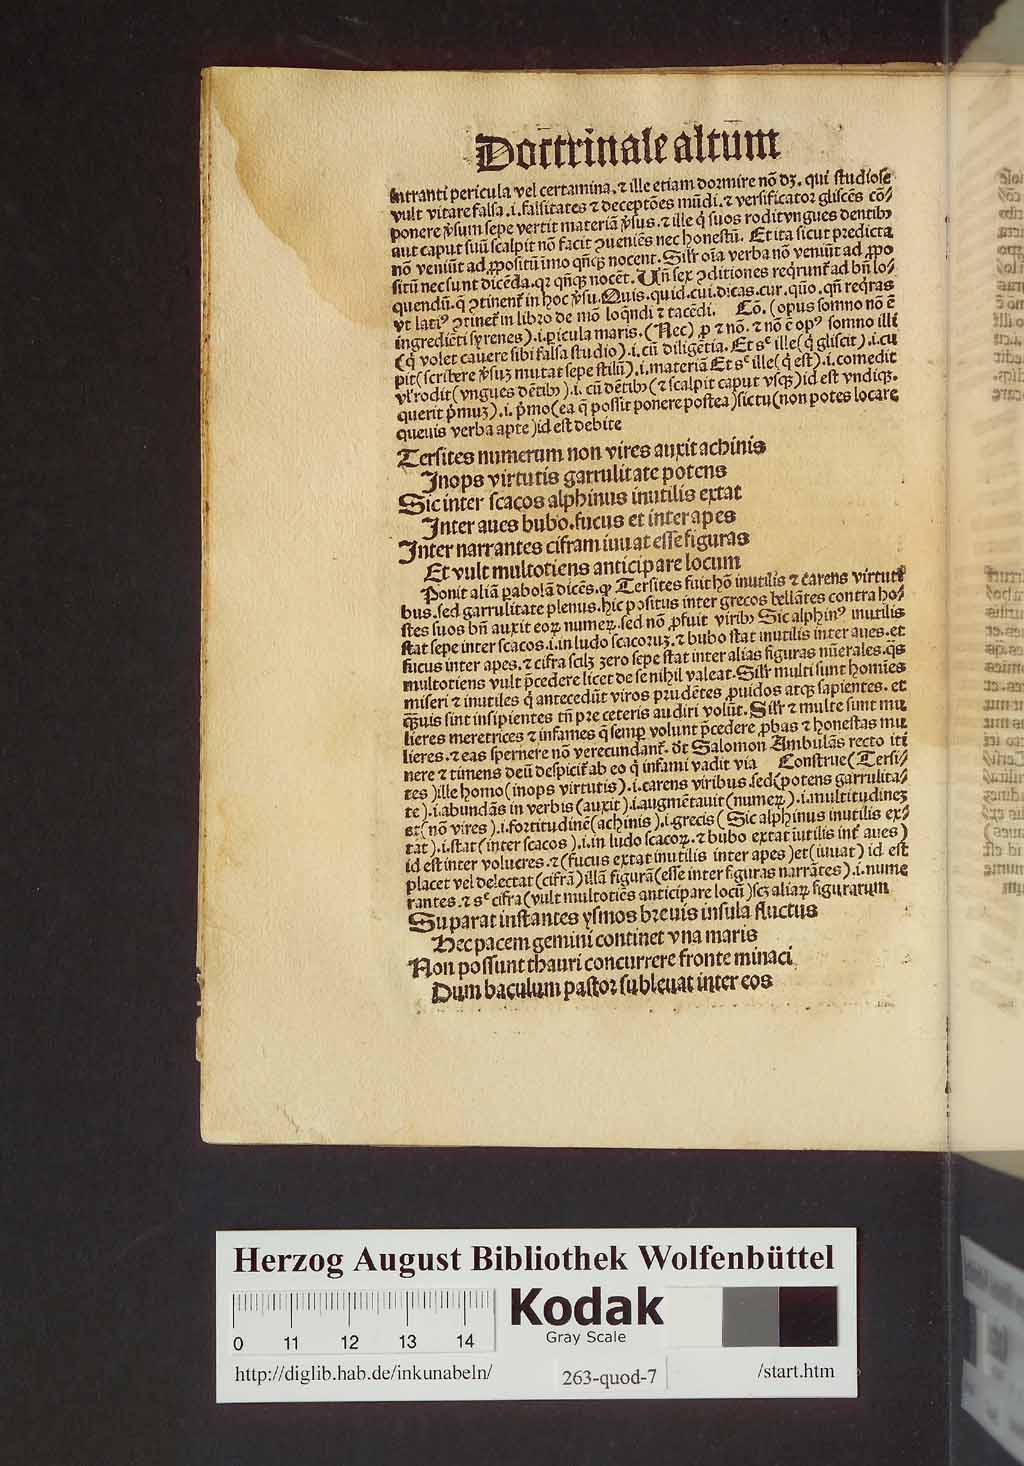 Doctrinale altum
intranti pericula vel certamina. ⁊ ille etiam dormire nõ dꝫ. qui studiose
vult vitare falsa .i. falsitates ⁊ deceptões mũdi. ⁊ versificator gliscẽs cõ/
ponere ꝟsum sepe vertit materiã ꝟsus. ⁊ ille q̇ suos rodit vngues dentibꝰ
aut caput suũ scalpit nõ facit ꝯueniẽs nec honestũ. Et ita sicut predicta
nõ veniũt ad ꝓpositũ imo qñqꝫ nocent. Silr̃ oĩa verba nõ veniũt ad ꝓpo
sitũ nec sunt dicẽda. qꝛ qñqꝫ nocẽt. Uñ sex ꝯditiones reqꝛunt̃ ad bñ lo/
quendũ. q̃ ꝯtinent̃ in hoc ꝟsu. Quis. quid. cui. dicas. cur. quõ. qñ reqꝛas
vt latiꝰ ꝯtinet̃ in libro de mõ loqndi ⁊ tacẽdi. Cõ. (opus somno nõ ẽ
ingrediẽti syrenes) .i. ꝑicula maris. (Nec) ꝓ ⁊ nõ. ⁊ nõ ẽ opꝰ somno illi
(q̇ volet cauere sibi falsa studio) .i. cũ diligẽtia. Et sᶜ ille (q̇ gliscit) .i. cu
pit (scribere ꝟsuꝫ mutat sepe stilũ) .i. materiã Et sᶜ ille (q̇ est) .i. comedit
vl̃ rodit (vngues dẽtibꝰ) .i. cũ dẽtibꝰ (⁊ scalpit caput vsqꝫ) id est vndiqꝫ.
querit pͥmuꝫ) .i. pͥmo (ea q̃ possit ponere postea) sic tu (non potes locare
queuis verba apte) id est debite
Tersites numerum non vires auxit achinis
Inops virtutis garrulitate potens
Sic inter scacos alphinus inutilis extat
Inter aues bubo. fucus et inter apes
Inter narrantes cifram iuuat esse figuras
Et vult multotiens anticipare locum
Ponit aliã ꝑabolã dicẽs. ꝙ Tersites fuit hõ inutilis ⁊ carens virtuti
bus. sed garrulitate plenus. hic positus inter grecos bellãtes contra ho/
stes suos bñ auxit eoꝝ numeꝝ. sed nõ ꝓfuit viribꝰ Sic alphinꝰ inutilis
stat sepe inter scacos .i. in ludo scacoruꝫ. ⁊ bubo stat inutilis inter aues. et
fucus inter apes. ⁊ cifra scilꝫ zero sepe stat inter alias figuras nũerales. q̃s
multotiens vult p̃cedere licet de se nihil valeat. Silr̃ multi sunt homĩes
miseri ⁊ inutiles q̇ antecedũt viros prudẽtes ꝓuidos atqꝫ sapientes. et
q̃uis sint insipientes tñ pre ceteris audiri volũt. Silr̃ ⁊ multe sunt mu
lieres meretrices ⁊ infames q̃ semꝑ volunt p̃cedere ꝓbas ⁊ honestas mu
lieres. ⁊ eas spernere nõ verecundant̃. õt Salomon Ambulãs recto iti
nere ⁊ timens deũ despicit̃ ab eo q̇ infami vadit via Construe (Tersi/
tes) ille homo (inops virtutis) .i. carens viribus. sed (potens garrulita/
te) .i. abundãs in verbis (auxit) .i. augmẽtauit (numeꝝ) .i. multitudineꝫ
et (nõ vires) .i. fortitudinẽ (achinis) .i. grecis (Sic alphinus inutilis ex/
tãt) .i. stat (inter scacos) .i. in ludo scacoꝝ. ⁊ bubo extat ĩutilis int̃ aues)
id est inter volucres. ⁊ (fucus extat inutilis inter apes) et (iuuat) id est
placet vel delectat (cifrã) illã figurã (esse inter figuras narrãtes) .i. nume
rantes. ⁊ sᶜ cifra (vult multotiẽs anticipare locũ) scꝫ aliaꝝ figurarum
Suparat instantes ysmos breuis insula fluctus
Hec pacem gemini continet vna maris
Non possunt thauri concurrere fronte minaci
Dum baculum pastor subleuat inter eos
Herzog August Bibliothek Wolfenbüttel
0 11 12 13 14
Kodak
Gray Scale
http://diglib.hab.de/inkunabeln/ 263-quod-7 /start.htm